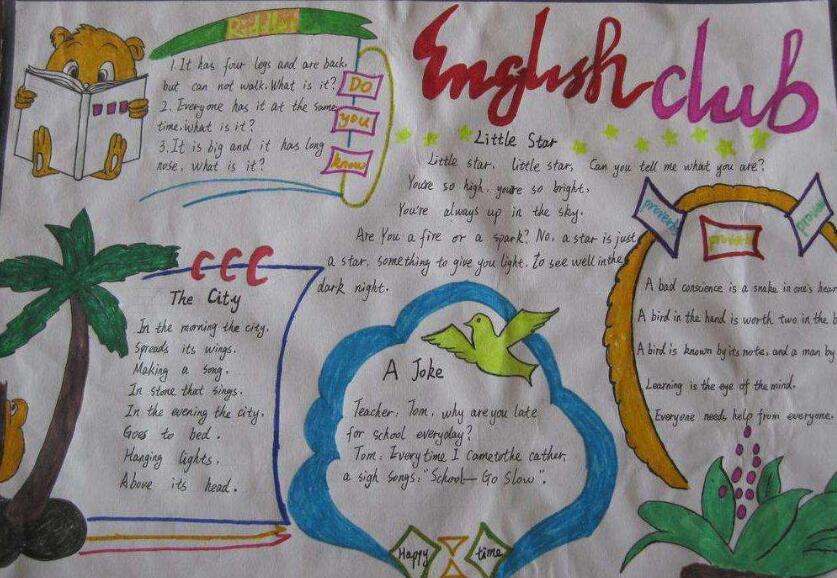 English club
1. It has four legs and are back,
but can not walk. What is it?
2. Everyone has it at the same
time. What is it?
3. It is big and it has long
nose. What is it?
Do
you
know
Little Star
Little star, little star, Can you tell me what you are?
You're so high, you're so bright,
You're always up in the sky.
Are You a fire or a spark? No, a star is just
a star, something to give you light. To see well in the
dark night.
CCC
The City
In the morning the city.
Spreads its wings.
Making a song.
In stone that sings.
In the evening the city.
Goes to bed.
Hanging lights.
Above its head.
A Joke
Teacher: Tom, why are you late
for school everyday?
Tom: Every time I came to the cather,
a sigh songs: "School—Go Slow".
Happy time
proverb
proverb
A bad conscience is a snake in one's hear
A bird in the hand is worth two in the b
A bird is known by its note, and a man by
Learning is the eye of the mind.
Everyone needs help from everyone.